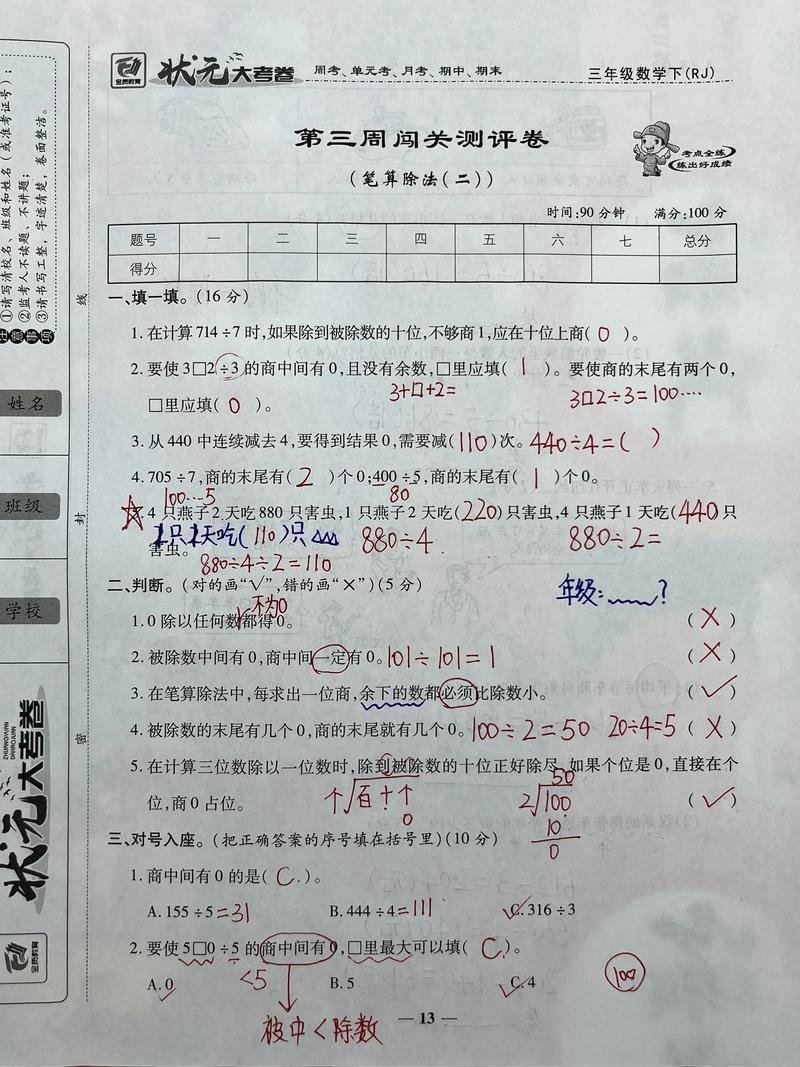 ①请写清校名、班级和姓名(或准考证号);
②监考人不读题、不讲题;
③请书写工整,字迹清楚,卷面整洁。
注意事项
姓名
班级
学校
线
封
密
状元大考卷
ZHUANGYUAN DAKAOJUAN
金质教育
金质教育 状元大考卷 周考、单元考、月考、期中、期末 三年级数学下(RJ)
第三周闯关测评卷
(笔算除法(二))
考点全练
练出好成绩
时间:90分钟 满分:100分
题号 一 二 三 四 五 六 七 总分
得分
一、填一填。(16分)
1.在计算714÷7时,如果除到被除数的十位,不够商1,应在十位上商( 0 )。
2.要使3□2÷3的商中间有0,且没有余数,□里应填( 1 )。要使商的末尾有两个0,
3+□+2= 3□2÷3=100····
□里应填( 0 )。
3.从440中连续减去4,要得到结果0,需要减(110)次。440÷4=( )
4.705÷7,商的末尾有( 2 )个0;400÷5,商的末尾有( 1 )个0。
100···5 80
4只燕子2天吃880只害虫,1只燕子2天吃(220)只害虫,4只燕子1天吃(440)只
害虫。 1只1天吃(110)只 880÷4 880÷2=
880÷4÷2=110
二、判断。(对的画“√”,错的画“×”)(5分) 年级:﹏﹏?
不为0
1.0除以任何数都得0。 (×)
2.被除数中间有0,商中间一定有0。101÷101=1 (×)
3.在笔算除法中,每求出一位商,余下的数都必须比除数小。 (√)
4.被除数的末尾有几个0,商的末尾就有几个0。100÷2=50 20÷4=5 (×)
5.在计算三位数除以一位数时,除到被除数的十位正好除尽,如果个位是0,直接在个
位,商0占位。 (√)
个 百十个 0
50
2 100
10
0
三、对号入座。(把正确答案的序号填在括号里)(10分)
1.商中间有0的是( C. )。
A.155÷5=31 B.444÷4=111 C.316÷3
2.要使5□0÷5的商中间有0,□里最大可以填( C. )。
A.0 <5 B.5 C.4
100
被中<除数
— 13 —